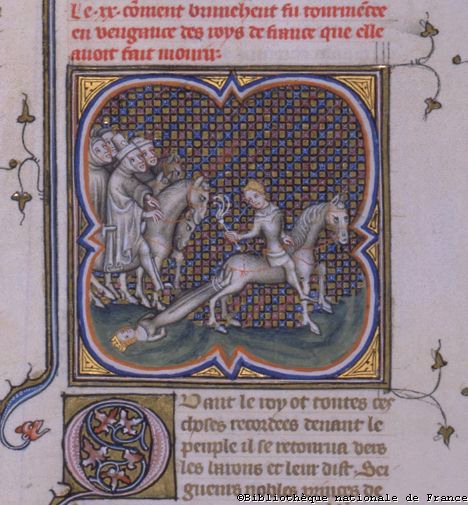 Le·xx·cõment brunehent fu tourmẽtee
en vengance des roys de france que elle
auoit fait mourir·
Quant le roy ot toutes ces
choses recordees deuant le
peuple il se retourna vers
les barons et leur dist· Sei
gneurs nobles princes de
©Bibliothèque nationale de France